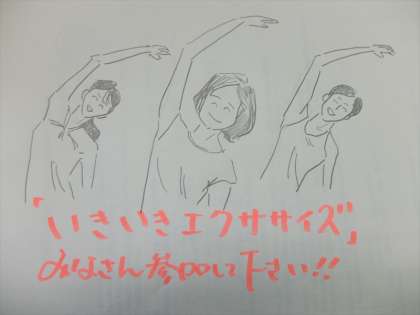 「いきいきエクササイズ」
みなさん参加して下さい!!